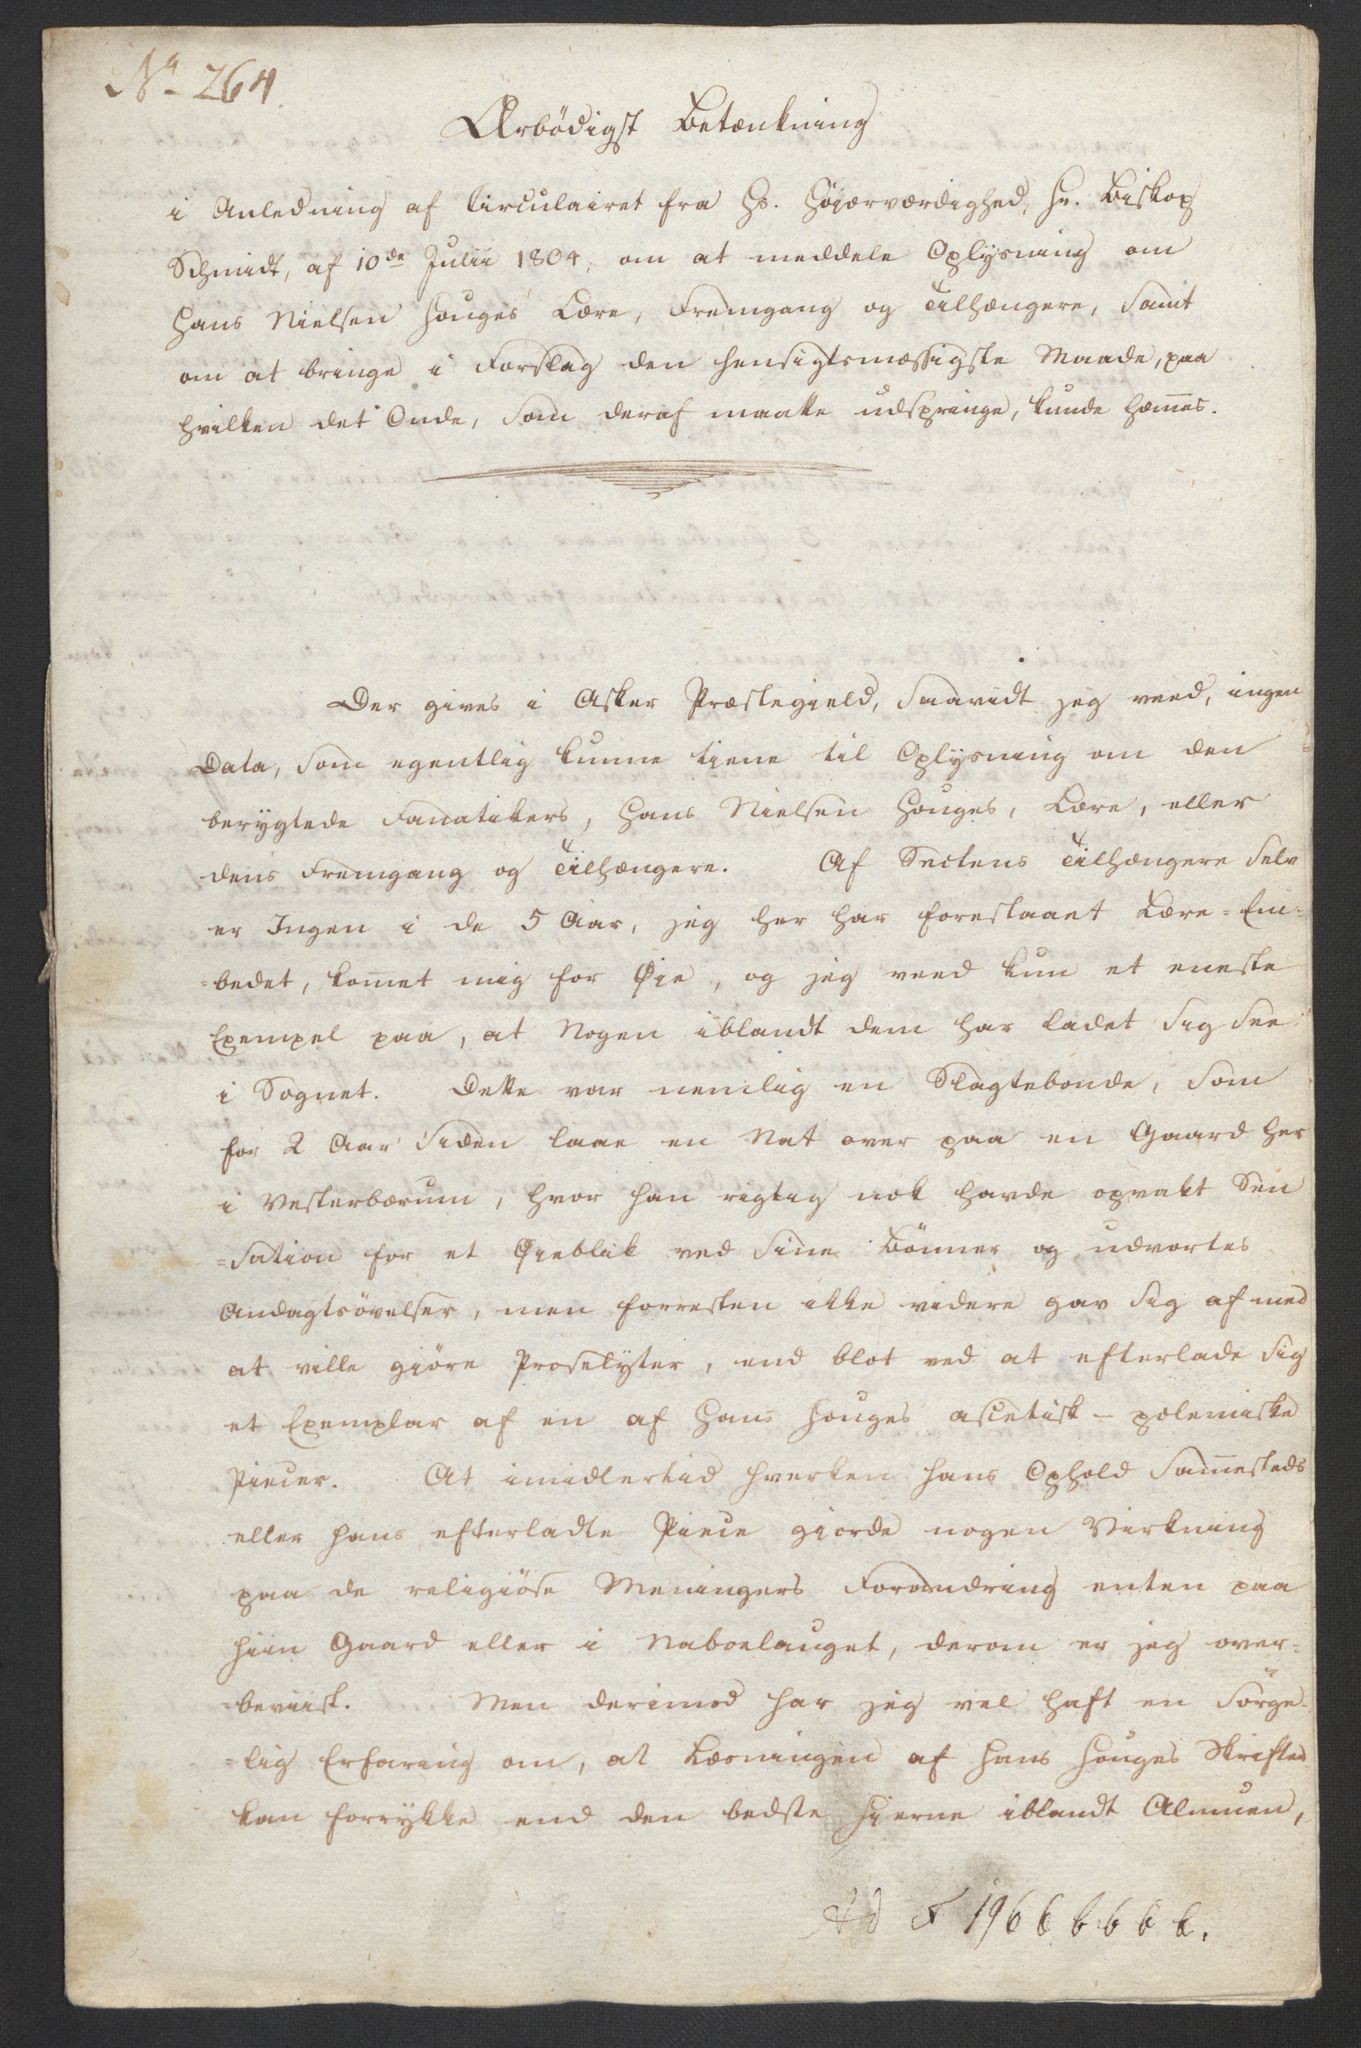 No 264.
Ærbödigst Betænkning
i Anledning af Circulairet fra Hs. Höjærværdighed, Hr. Biskop
Schmidt, af 10de Julii 1804, om at meddele Oplysning om
Hans Nielsen Houges Lære, Fremgang og Tilhængere, samt
om at bringe i Forslag den hensigtsmæssigste Maade, paa
hvilken det Onde, som deraf maatte udspringe, kunde hæmes.
Der gives i Asker Præstegield, saavidt jeg veed, ingen
Data, som egentlig kunne tiene til Oplysning om den
berygtede Fanatikers, Hans Nielsen Houges, Lære, eller
dens Fremgang og Tilhængere. Af Sectens Tilhængere selv
er Ingen i de 5 Aar, jeg her har forestaaet Lære-Em-
-bedet, komet mig for Øje, og jeg veed kun et eneste
Exempel paa, at Nogen iblandt dem har ladet sig see
i Sognet. Dette var nemlig en Slagtebonde, som
for 2 Aar siden laae en Nat over paa en Gaard her
i Vesterbærum, hvor han rigtig nok havde opvakt Sen
-sation for et Øieblik ved sine Bönner og udvortes
Andagtsövelser, men forresten ikke videre gav sig af med
at ville giöre Proselyter, end blot ved at efterlade sig
et Exemplar af en af Hans Houges ascetisk-polemiske
Piecer. At imidlertid hverken hans Ophold sammesteds
eller hans efterladte Piece giorde nogen Virkning
paa de religiöse Meningers Forandring enten paa
hiin Gaard eller i Naboelauget, derom er jeg over-
-beviist. Men derimod har jeg vel haft en sörge-
-lig Erfaring om, at Læsningen af Hans Houges Skrifter
kan forrykke end den bedste Hierne iblandt Almuen,
Ad F 1966 b b b b.